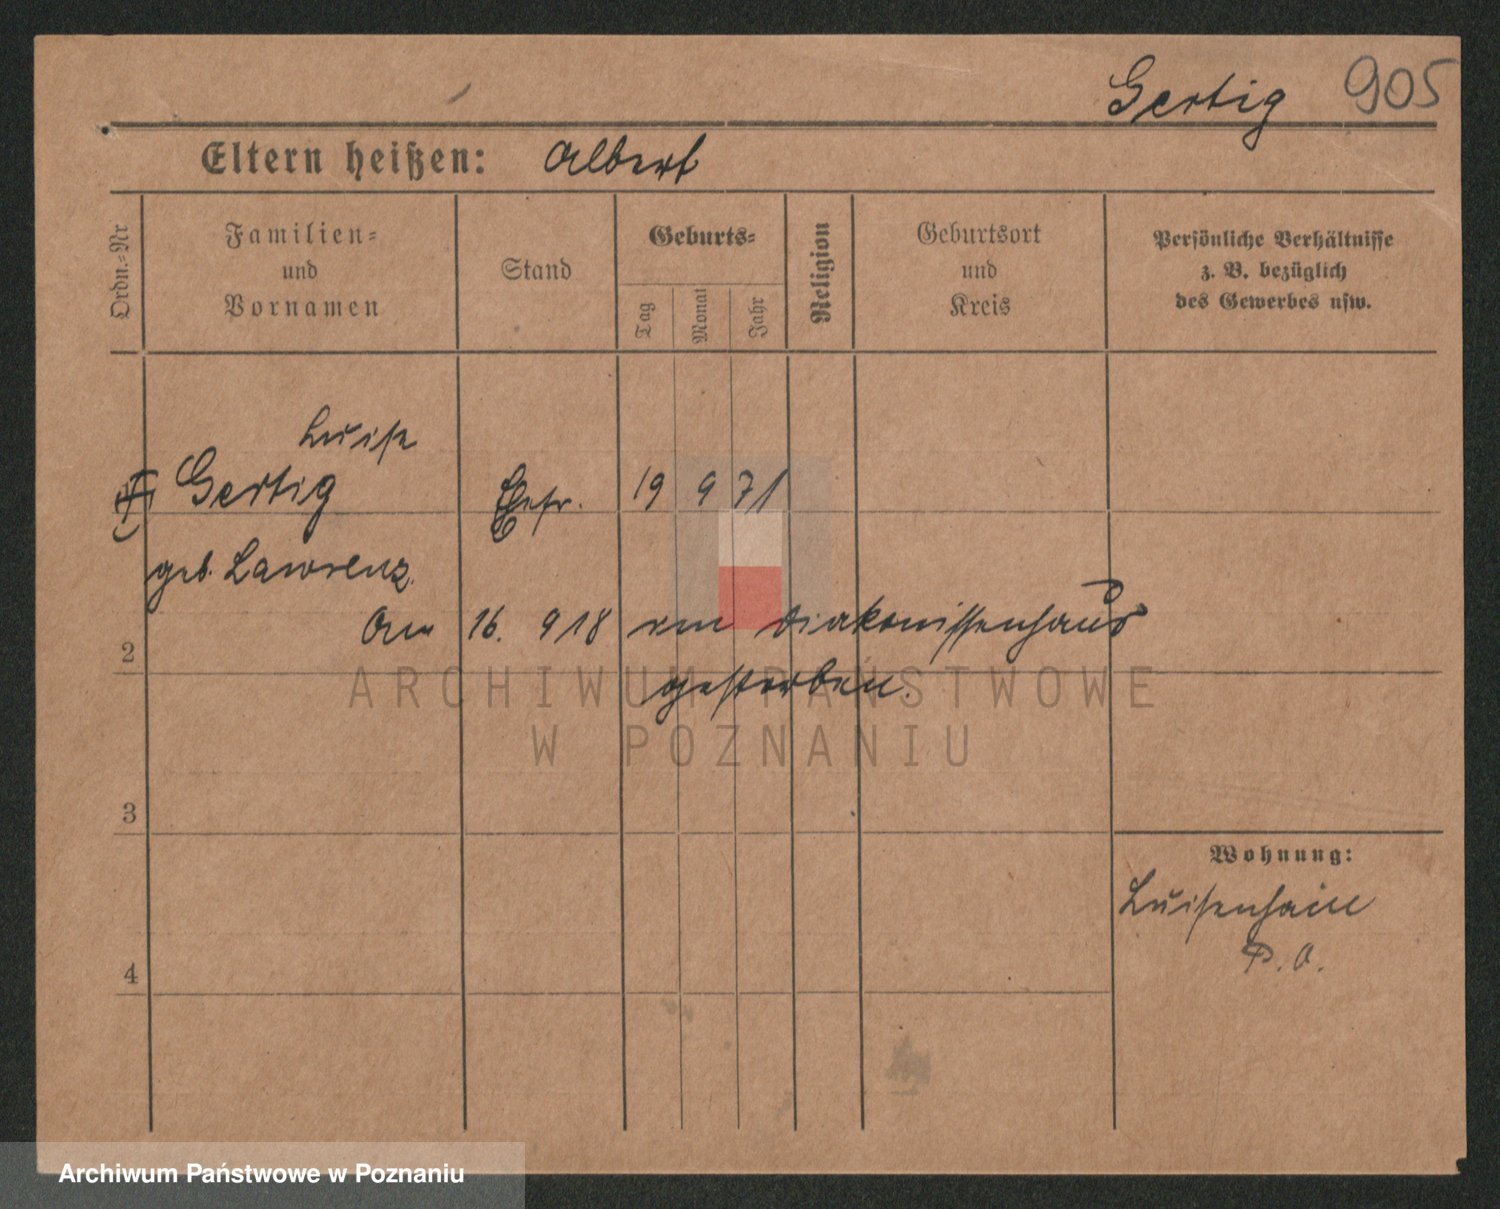 Gertig 905
Eltern heißen: Albert
Ordn.-Nr
Familien-
und
Vornamen
Stand
Geburts-
Tag
Monat
Jahr
Religion
Geburtsort
und
Kreis
Persönliche Verhältnisse
z. B. bezüglich
des Gewerbes usw.
Luise
Gertig Ehefr. 19 9 71
geb. Lawrenz.
Am 16. 9 18 im Diakonissenhaus
2
gestorben.
3
4
Wohnung:
Luisenhain
P. O.
ARCHIWUM PAŃSTWOWE
W POZNANIU
Archiwum Państwowe w Poznaniu